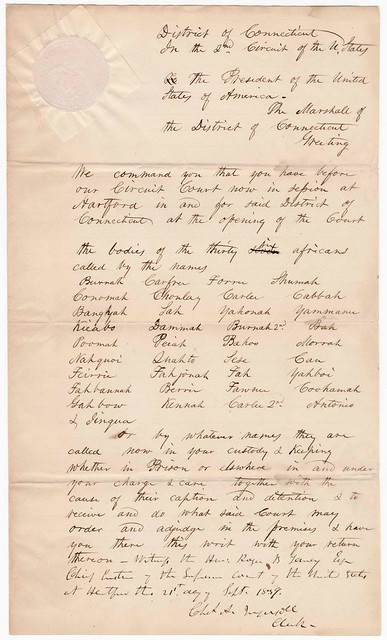 District of Connecticut
In the 2nd Circuit of the U. States
the President of the United
States of America -
The Marshall of
the District of Connecticut
Greeting
We command you that you have before
our Circuit Court now in session at
Hartford in and for said District of
Connecticut at the opening of the Court
the bodies of the thirty africans
called by the names
Burnah Carfree Forru Shumah
Conomah Choolay Carlee Cabbah
Banghyah Sah Yahonah Yammanu
Kinabo Dammah Burnah 2d. Bah
Poomah Peiah Bahoo Morrah
Nahquoi Quahto Sese Cau
Feirrie Fahsonah Fah Yahboi
Fahbannah Berrie Fawnu Cockamah
Gahbow Kennah Carlee 2nd Antonio
& Singua
Or by whatever names they are
called now in your custody & keeping
whether in Prison or elswhere in and under
your charge & care together with the
cause of their caption and detention & to
receive and do what said Court may
order and adjudge in the premises & have
you there this writ with your return
thereon - Witness the Hon. Roger B Taney Esq
Chief Justice of the Supreme Court of the United States
At Hartford this 21st day of Sept. 1839.
Chs. A. Ingersoll
Clerk -